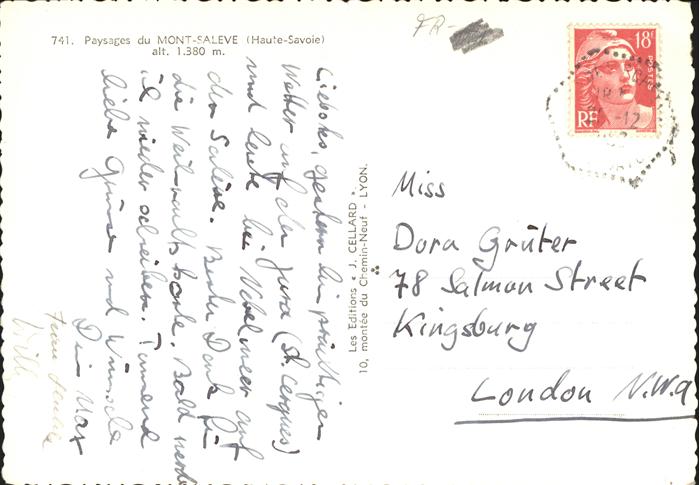 741. Paysages du MONT-SALEVE (Haute-Savoie)
alt. 1.380 m.
FR-
18F
POSTES
RF
Liebchs, gestern bei prächtigem
Wetter auf der Jura (St. Cergues)
und heute bei Nebelmeer auf
der Salève. Besten Dank für
die Weihnachtskarte. Bald werde
ich wieder schreiben. Tausend
liebe Grüsse und Wünsche
Dein Max
Willi
Les Editions * J. CELLARD *
10, montée du Chemin-Neuf - LYON.
Miss
Dora Grüter
78 Salmon Street
Kingsburg
London N.W.9